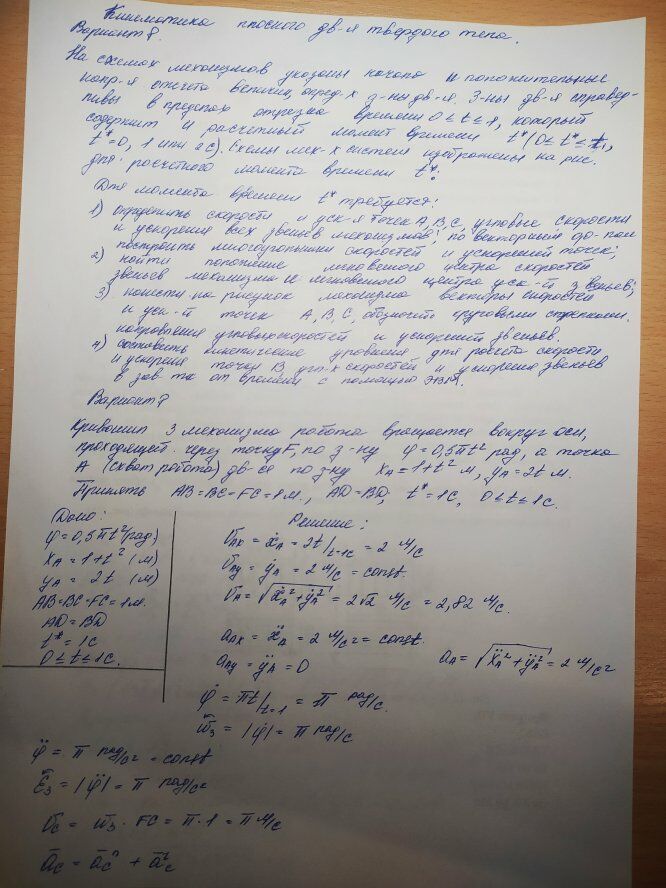 Кинематика плоского дв-я твердого тела.
Вариант 8.
На схемах механизмов указаны начало и положительные
напр-я отсчета величин, опред-х з-ны дв-я. З-ны дв-я справед-
ливы в пределах отрезка времени 0 ≤ t ≤ 1, который
содержит и расчетный момент времени t* (0 ≤ t* ≤ t₁,
t* = 0, 1 или 2с). Схемы мех-х систем изображены на рис.
для расчетного момента времени t*:
Для момента времени t* требуется:
1) определить скорости и уск-я точек A, B, C, угловые скорости
и ускорения всех звеньев механизмов; по векторным
построить многоугольники скоростей и ускорений точек;
2) найти положение мгновенного центра скоростей
звеньев механизма и мгновенного центра уск-й 3 звеньев;
3) нанести на рисунок механизма векторы скоростей
и уск-й точек A, B, C, обозначить круговыми стрелками
направления угловых скоростей и ускорений звеньев.
4) составить кинетические уравнения для расчета скорости
и ускорения точки B угл-х скоростей и ускорения звеньев
в зав-ти от времени с помощью ЭВМ.
Вариант 8
Кривошип 3 механизма робота вращается вокруг оси,
проходящей через точку F, по з-ну φ = 0,5πt² рад, а точка
A (схват робота) дв-ся по з-ну x_A = 1 + t² м, y_A = 2t м.
Принять AB = BC = FC = 1м., AD = BD, t* = 1с, 0 ≤ t ≤ 1с.
Дано:
φ = 0,5πt² (рад.)
x_A = 1 + t² (м)
y_A = 2t (м)
AB = BC = FC = 1м.
AD = BD
t* = 1с
0 ≤ t ≤ 1с.
Решение:
υ_Ax = ẋ_A = 2t/t=1c = 2 м/с
υ_Ay = ẏ_A = 2 м/с = const.
υ_A = √(ẋ_A² + ẏ_A²) = 2√2 м/с = 2,82 м/с.
a_Ax = ẍ_A = 2 м/с² = const.
a_Ay = ÿ_A = 0
a_A = √(ẍ_A² + ÿ_A²) = 2 м/с²
φ̇ = πt/t=1 = π рад/с.
ω̄₃ = |φ̇| = π рад/с.
φ̈ = π рад/с² = const
ε̄₃ = |φ̈| = π рад/с²
ῡ_C = ω̄₃ · FC = π · 1 = π м/с
ā_C = ā_Cⁿ + ā_Cᵗ